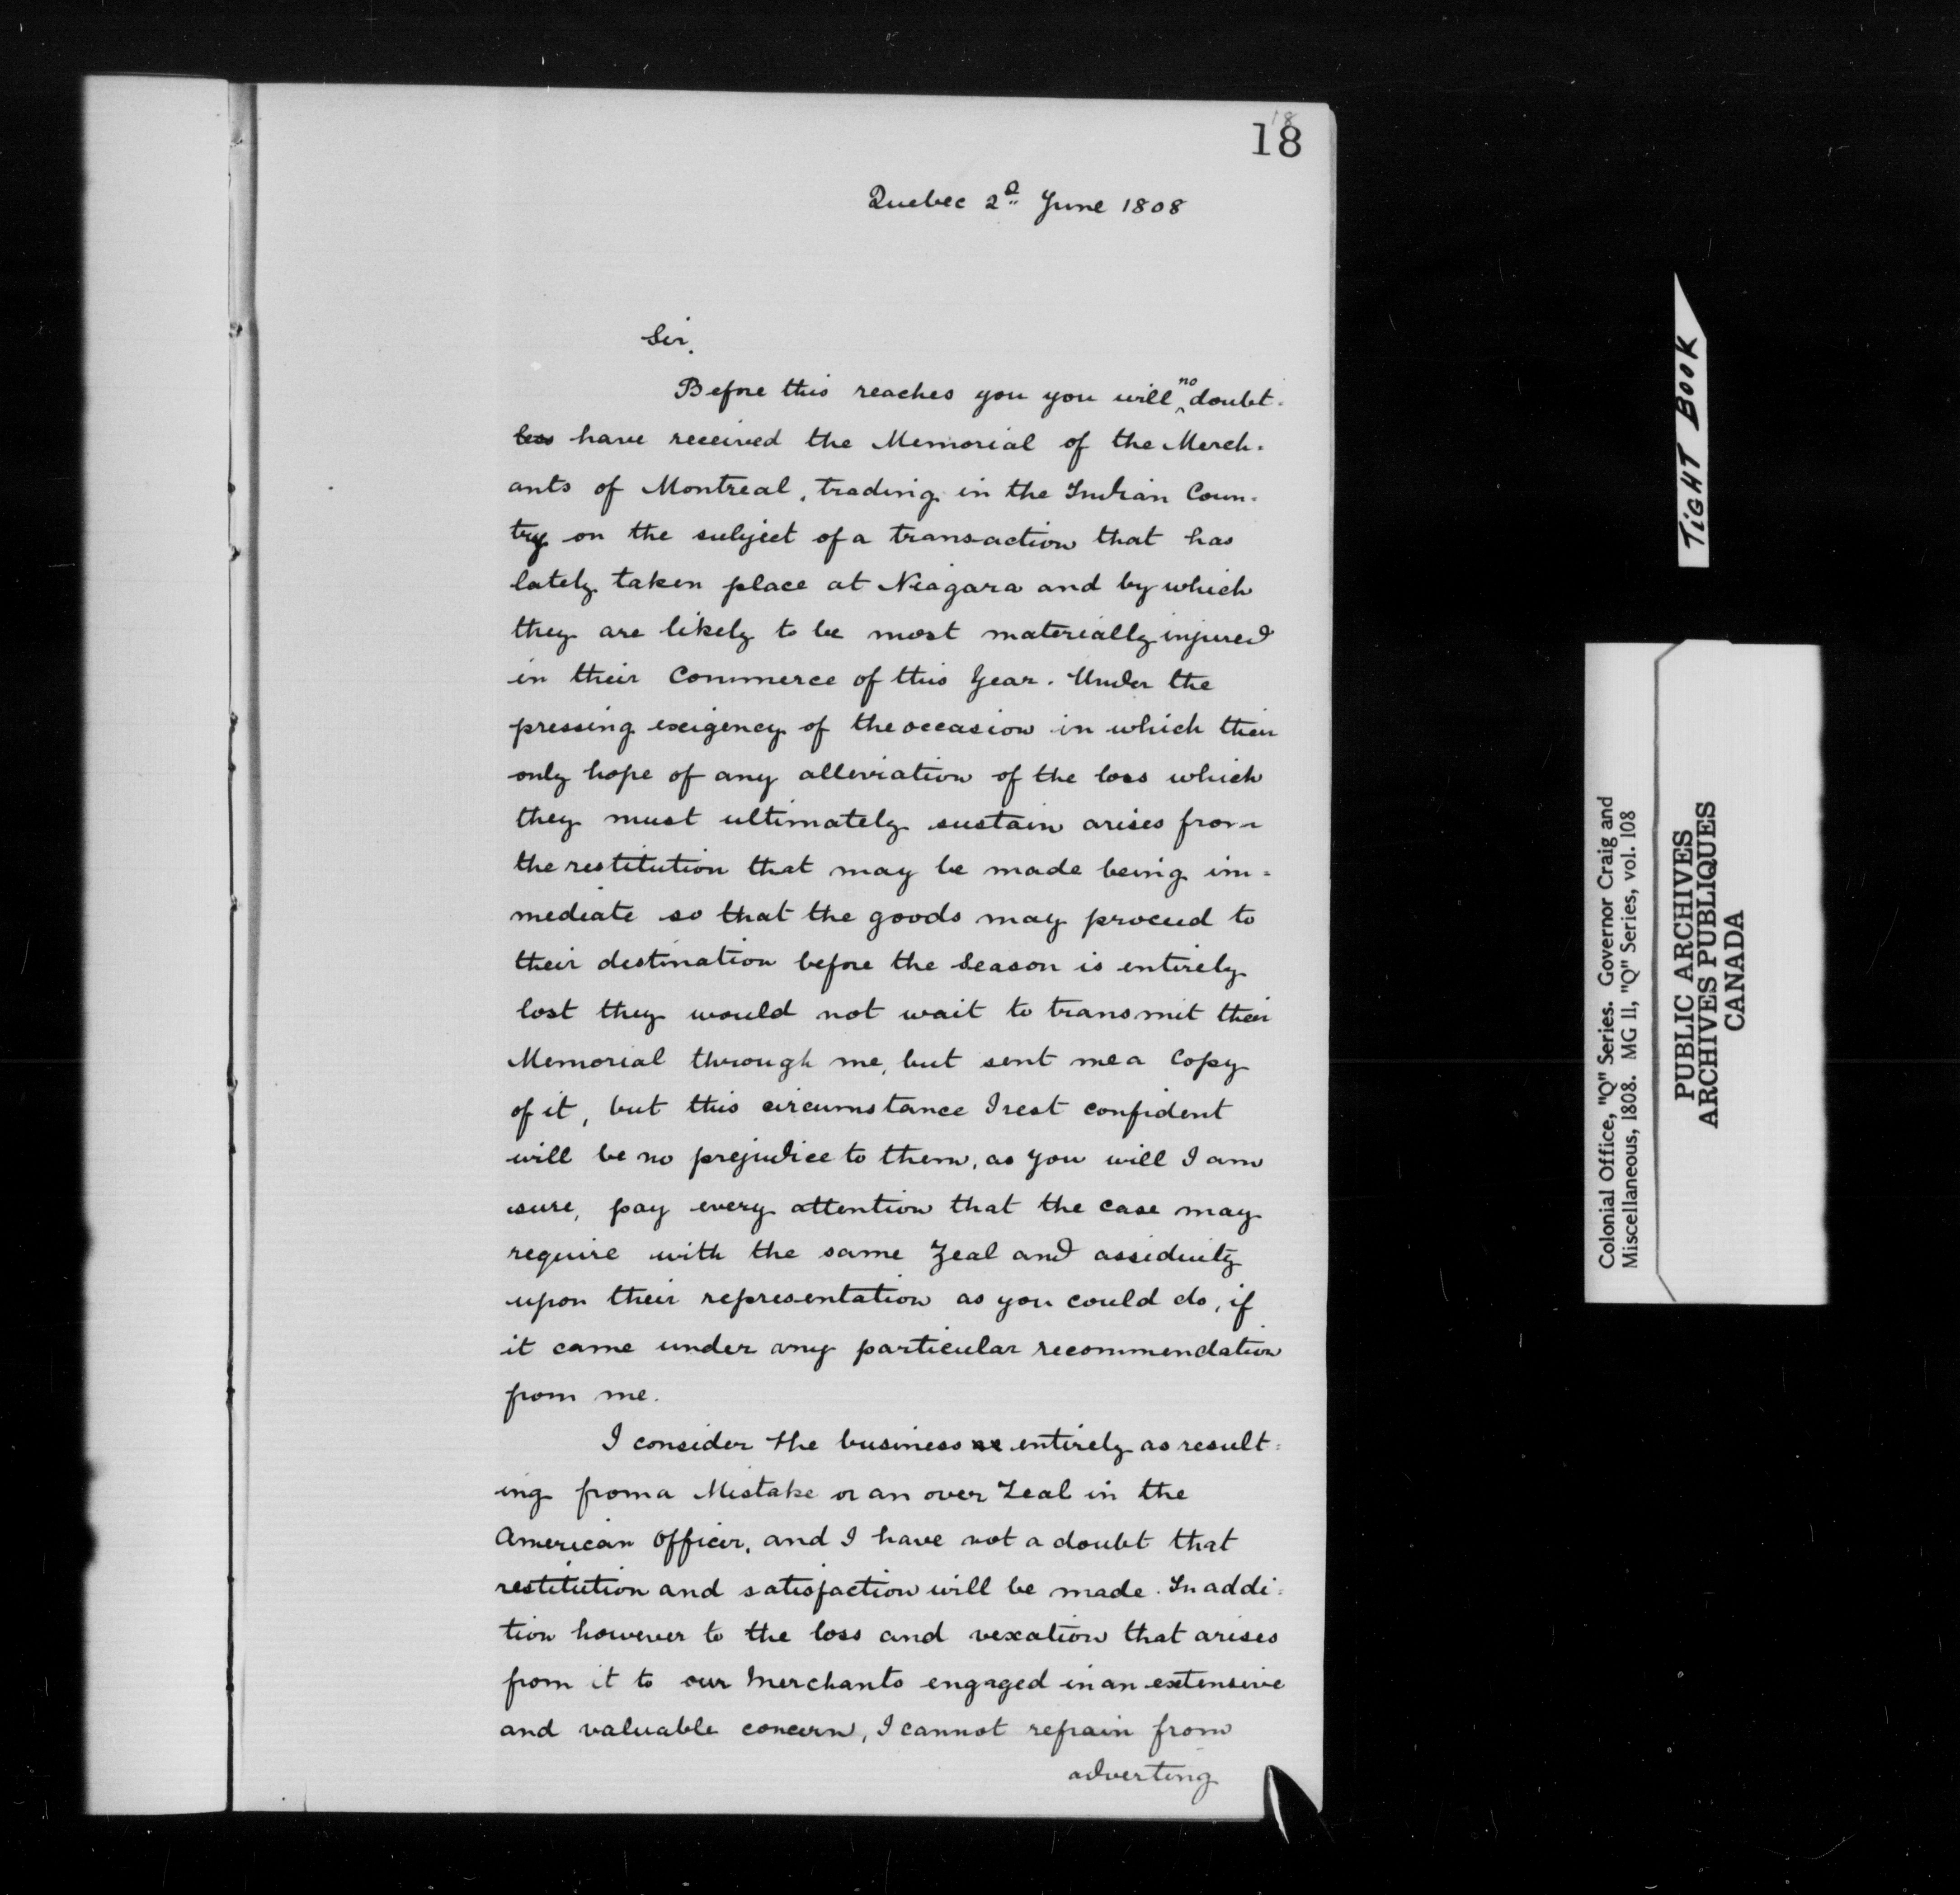 18
18
Quebec 2d June 1808
Sir,
Before this reaches you you will ^no doubt-
less have received the Memorial of the Merch-
ants of Montreal, trading in the Indian Coun-
try on the subject of a transaction that has
lately taken place at Niagara and by which
they are likely to be most materially injured
in their Commerce of this Year. Under the
pressing exigency of the occasion in which their
only hope of any alleviation of the loss which
they must ultimately sustain arises from
the restitution that may be made being im-
mediate so that the goods may proceed to
their destination before the Season is entirely
lost they would not wait to transmit their
Memorial through me, but sent me a Copy
of it, but this circumstance I rest confident
will be no prejudice to them, as you will I am
sure, pay every attention that the case may
require with the same Zeal and assiduity
upon their representation as you could do, if
it came under any particular recommendation
from me.
I consider the business as entirely as result-
ing from a Mistake or an over Zeal in the
American Officer, and I have not a doubt that
restitution and satisfaction will be made. In addi-
tion however to the loss and vexation that arises
from it to our Merchants engaged in an extensive
and valuable concern, I cannot refrain from
adverting
TIGHT BOOK
Colonial Office, "Q" Series. Governor Craig and
Miscellaneous, 1808. MG 11, "Q" Series, vol. 108
PUBLIC ARCHIVES
ARCHIVES PUBLIQUES
CANADA